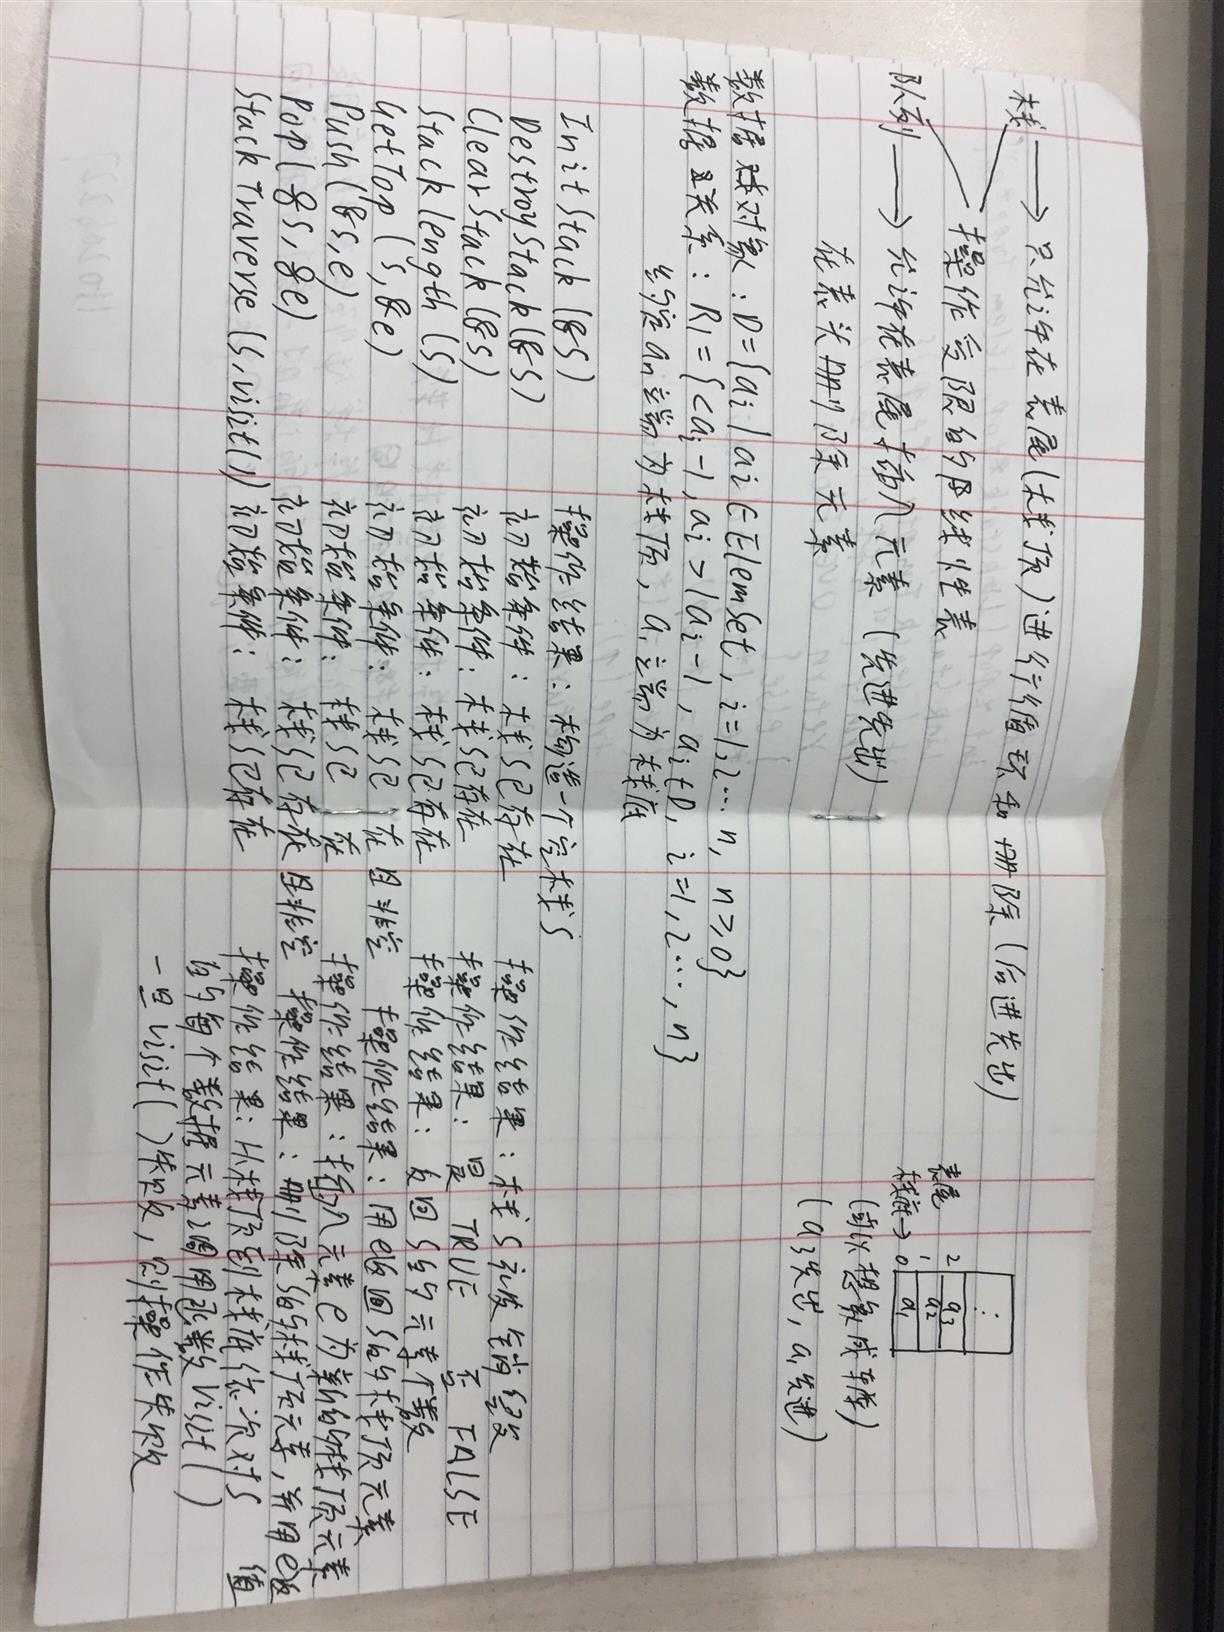 栈 → 只允许在表尾(栈顶)进行插入和删除(后进先出)
操作受限的线性表
队列 → 允许在表尾插入元素(先进先出)
在表头删除元素
表尾
栈底→
0 1 2
a1 a2 a3 ⋮
(可以想象成车库)
(a3先出,a1先进)
数据对象:D={ai|ai∈ElemSet,i=1,2…n,n≥0}
数据关系:R1={<ai-1,ai>|ai-1,ai∈D,i=1,2…,n}
约定an端为栈顶,a1端为栈底
InitStack(&S) 操作结果:构造一个空栈S
DestroyStack(&S) 初始条件:栈S已存在 操作结果:栈S被销毁
ClearStack(&S) 初始条件:栈S已存在 操作结果:是 TRUE 否 FALSE
StackLength(S) 初始条件:栈S已存在 操作结果:返回S的元素个数
GetTop(S,&e) 初始条件:栈S已 在且非空 操作结果:用e返回S的栈顶元素
Push(&S,e) 初始条件:栈S已 在 操作结果:插入元素e为新的栈顶元素
Pop(&S,&e) 初始条件:栈S已存在且非空 操作结果:删除S的栈顶元素,并用e返 值
StackTraverse(S,visit()) 初始条件:栈S已存在 操作结果:从栈顶到栈底依次对S
的每个数据元素调用函数visit()
一旦visit()失败,则操作失败